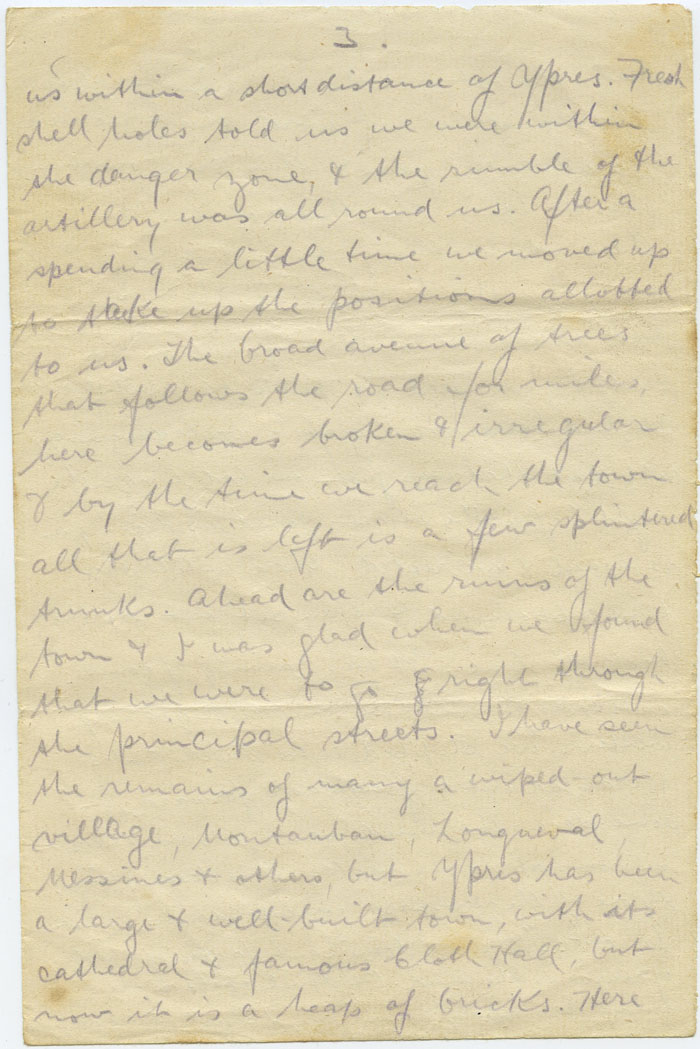 3.
us within a short distance of Ypres. Fresh
shell holes told us we were within
the danger zone, & the rumble of the
artillery was all round us. After a
spending a little time we moved up
to take up the positions allotted
to us. The broad avenue of trees
that follows the road for miles,
here becomes broken & irregular
& by the time we reach the town
all that is left is a few splintered
trunks. Ahead are the ruins of the
town & I was glad when we found
that we were to go right through
the principal streets. I have seen
the remains of many a wiped-out
village, Montauban, Longueval,
Messines & others, but Ypres has been
a large & well-built town, with its
cathedral & famous Cloth Hall, but
now it is a heap of bricks. Here